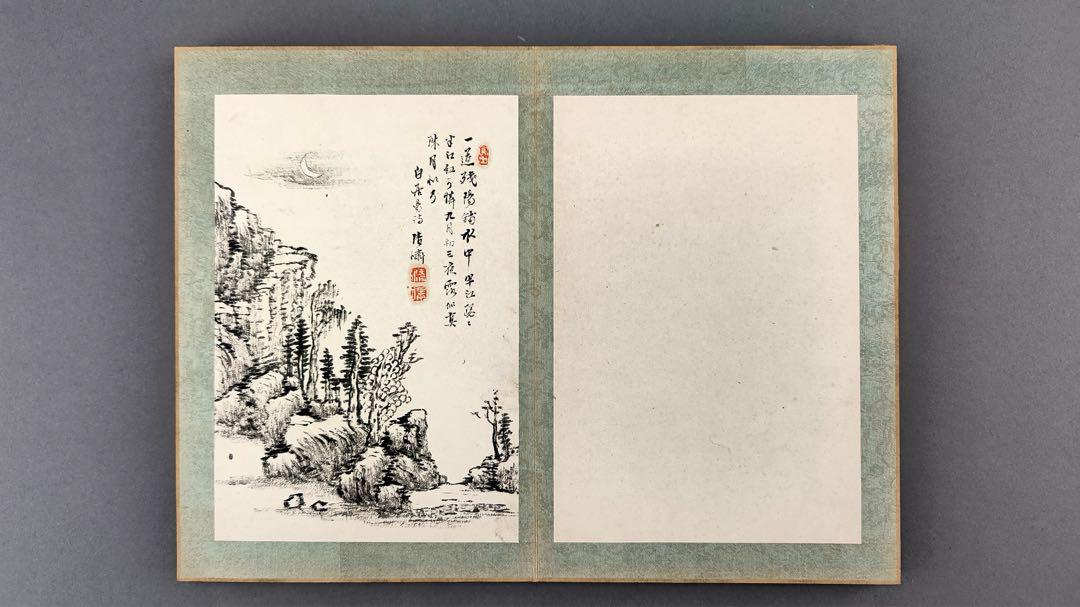 一道殘陽鋪水中半江瑟〻
半江紅可憐九月初三夜露似真
珠月似弓
白居易詩